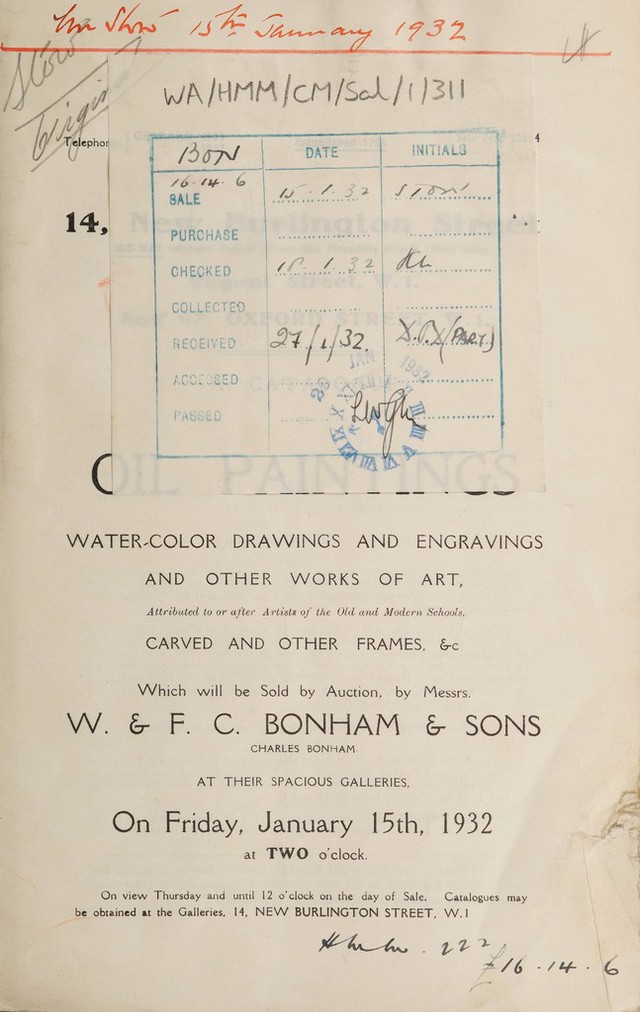 Mr Stow 15th January 1932
Stow
Virgin
WA/HMM/CM/Sal/1/311
Telephon
4
BON
DATE
INITIALS
16-14-6
SALE 15.1.32 STOW
PURCHASE
14, New Burlington Street
CHECKED 18.1.32
Street, W.1.
COLLECTED
OXFORD STREET, W.1.
RECEIVED 27/1/32. (PART)
JAN 1932
ACCESSED
PASSED
OIL PAINTINGS
WATER-COLOR DRAWINGS AND ENGRAVINGS
AND OTHER WORKS OF ART,
Attributed to or after Artists of the Old and Modern Schools,
CARVED AND OTHER FRAMES, &c
Which will be Sold by Auction, by Messrs.
W. & F. C. BONHAM & SONS
CHARLES BONHAM.
AT THEIR SPACIOUS GALLERIES,
On Friday, January 15th, 1932
at TWO o'clock.
On view Thursday and until 12 o'clock on the day of Sale. Catalogues may
be obtained at the Galleries, 14, NEW BURLINGTON STREET, W.1
222
£16-14-6